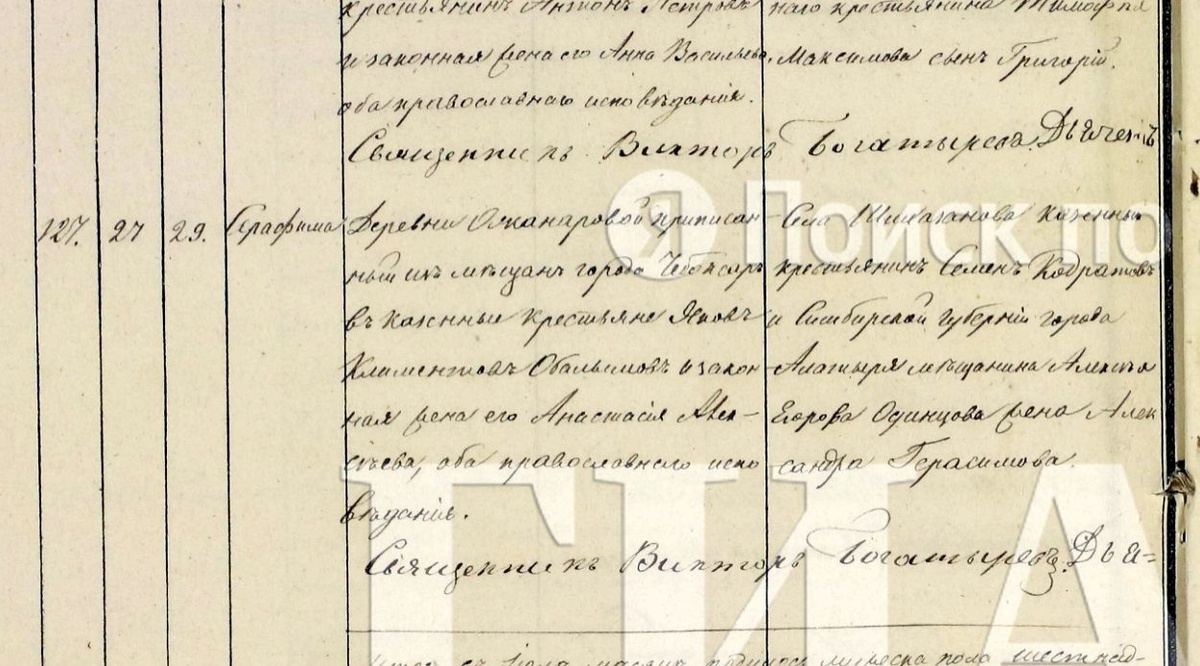 крестьянинъ Антонъ Петровъ
наго крестьянина Тимофея
и законная жена его Анна Васильева,
Максимова сынъ Григорій.
оба православнаго исповѣданія.
Священникъ Викторъ Богатыревъ. Дьячекъ
127. 27 29. Серафима
Деревни приписан-
ный изъ мѣщанъ города Чебоксаръ
въ казенные крестьяне Яковъ
Климентовъ и закон-
ная жена его Анастасія Алек-
сѣева, оба православнаго испо
вѣданія.
Села казенный
крестьянинъ Семенъ Кодратовъ
и Симбирской губерніи города
Алатыря мѣщанина Алексѣя
Егорова Одинцова жена Алек
сандра Герасимова.
Священникъ Викторъ Богатыревъ. Дья=
Итого въ мѣсяцѣ родилось мужеска пола шестнад-
Я Поиск по
ГИА